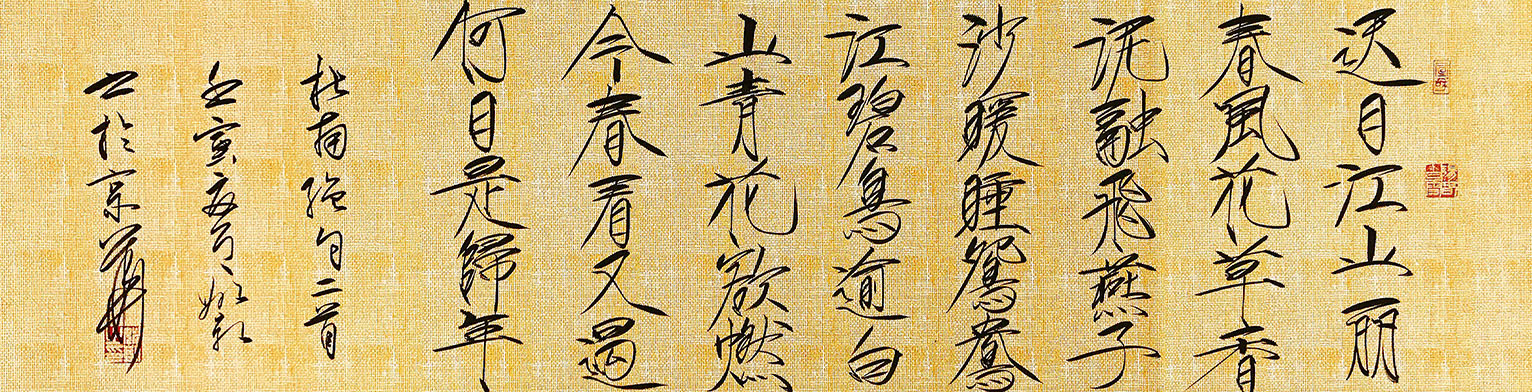 迟日江山丽
春風花草香
泥融飛燕子
沙暖睡鴛鴦
江碧鳥逾白
山青花欲燃
今春看又過
何日是歸年
杜甫絕句二首
壬寅亥月
书於京